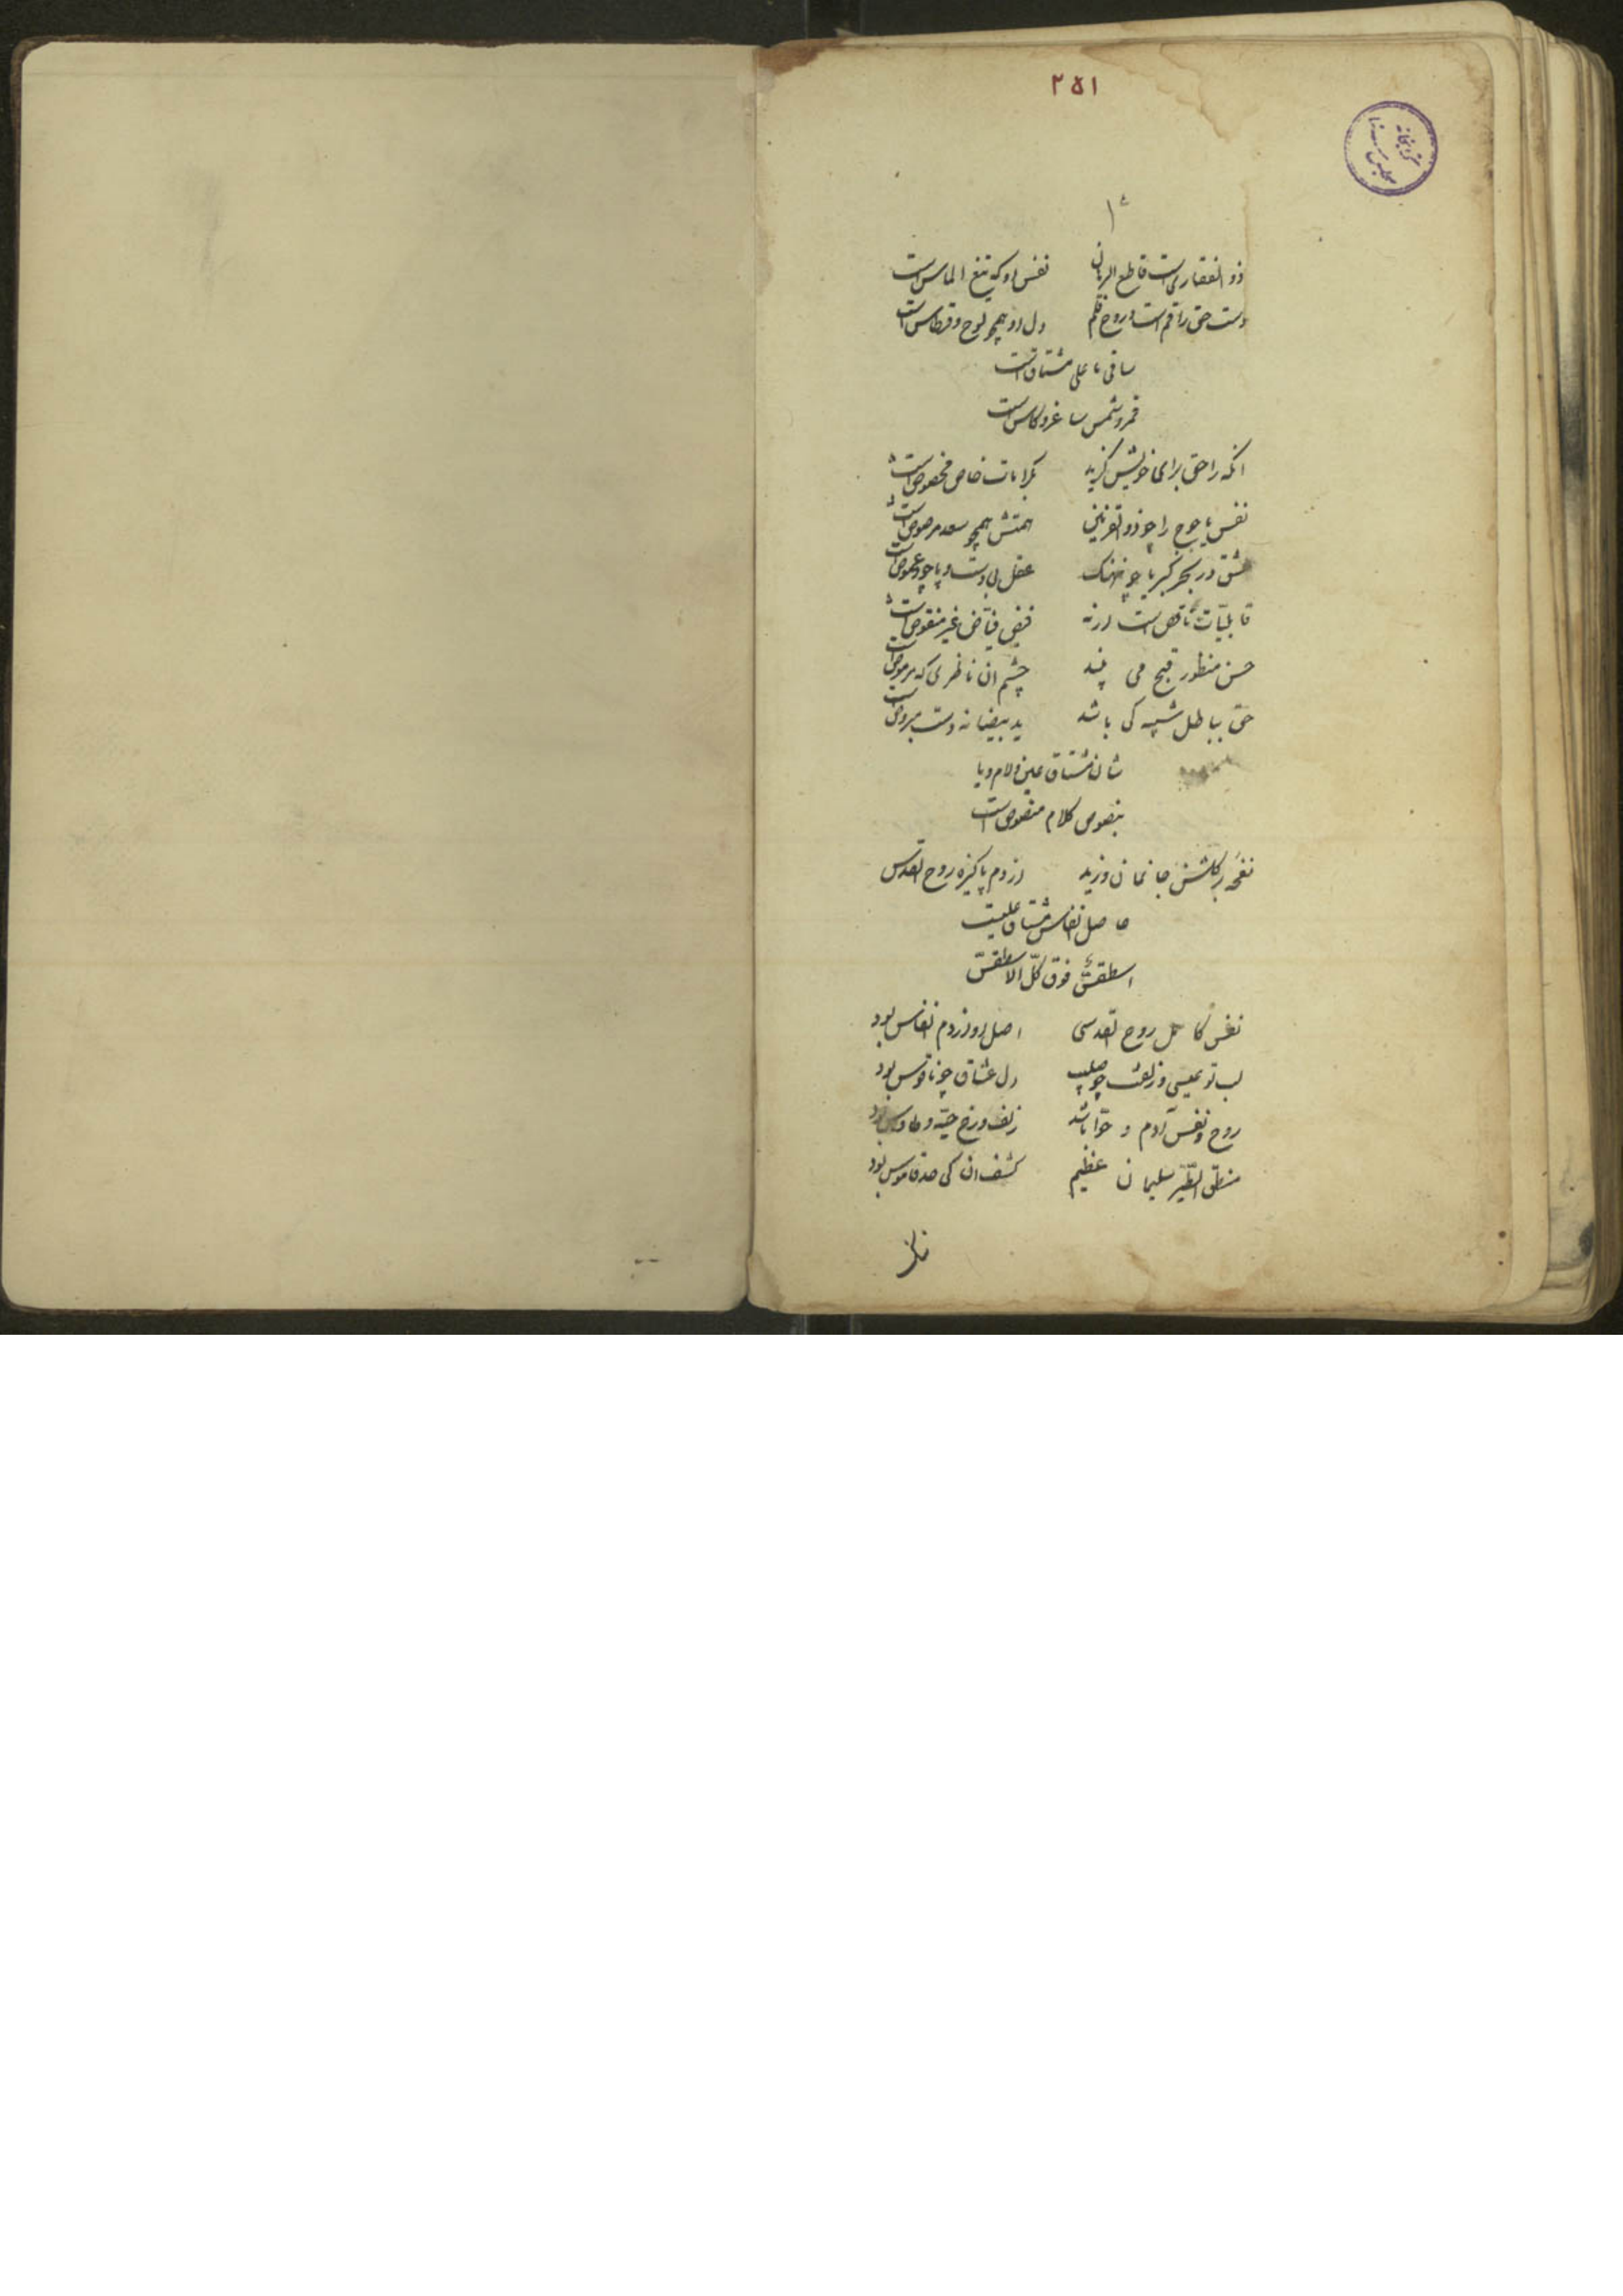 ۲۵۱
کتابخانه مجلس سنا
ذوالفقاریست قاطع البرهان نفس او که تیغ الماس است
دست حق راقم است و روح قلم دل او همچو لوح و قرطاس است
ساقی ما علی مشتاق است
قمر و شمس ساغر و کاس است
انکه را حق برای خویش گزید بکرامات خاص مخصوص است
نفس یاجوج را چو ذوالقرنین همتش همچو سد مرصوص است
عشق در بحر کبریا چو نهنک عقل بی دست و پا چو دعموص است
قابلیات ناقص است ارنه فیض فیاض غیر منقوص است
حسن منظور قبیح می بیند چشم ان ناظری که مرموص است
حق بباطل شبیه کی باشد ید بیضا نه دست مبروص است
شان مشتاق عین و لام و یا
بنصوص کلام منصوص است
نفحه بر گلشن جانمان وزید از دم پاکیزه روح القدس
حاصل انفاس مشتاق علیست
اسطقس فوق کل الاسطقس
نفس کامل روح القدسی اصل او از دم انفاس بود
لب تو عیسی و زلفت چو صلیب دل عشاق چو ناقوس بود
روح و نفس آدم و حوا باشد زلف و رخ حیه و طاوس بود
منطق الطیر سلیمان عظیم کشف ان کی صد قاموس بود